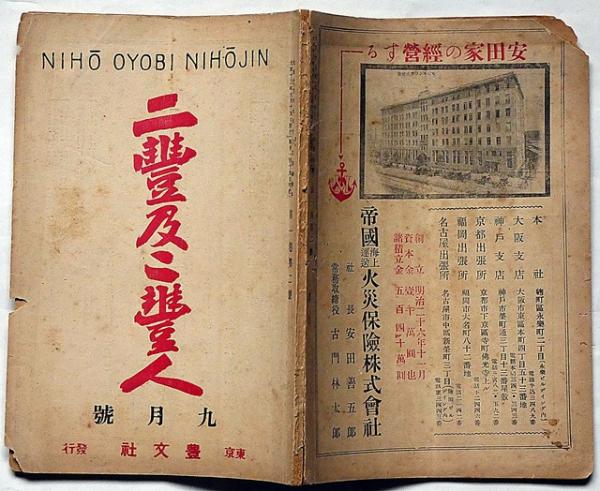 NIHŌ OYOBI NIHŌJIN
二豐及二豐人
九月號
東京 豊文社 發行
安田家の經營する
帝國海上運送火災保險株式會社
創立 明治二十六年十一月
資本金 壹千萬圓也
諸積立金 五百四十萬圓
社長 安田善五郎
常務取締役 古門林太郎
本社 麹町區永樂町二丁目
大阪支店 大阪市東區本町四丁目五十三番地
神戸支店 神戸市榮町通三丁目十二番屋敷
京都出張所 京都市下京區寺町佛光寺上ル
福岡出張所 福岡市大名町八十二番地
名古屋出張所 名古屋市中區新榮町三丁目